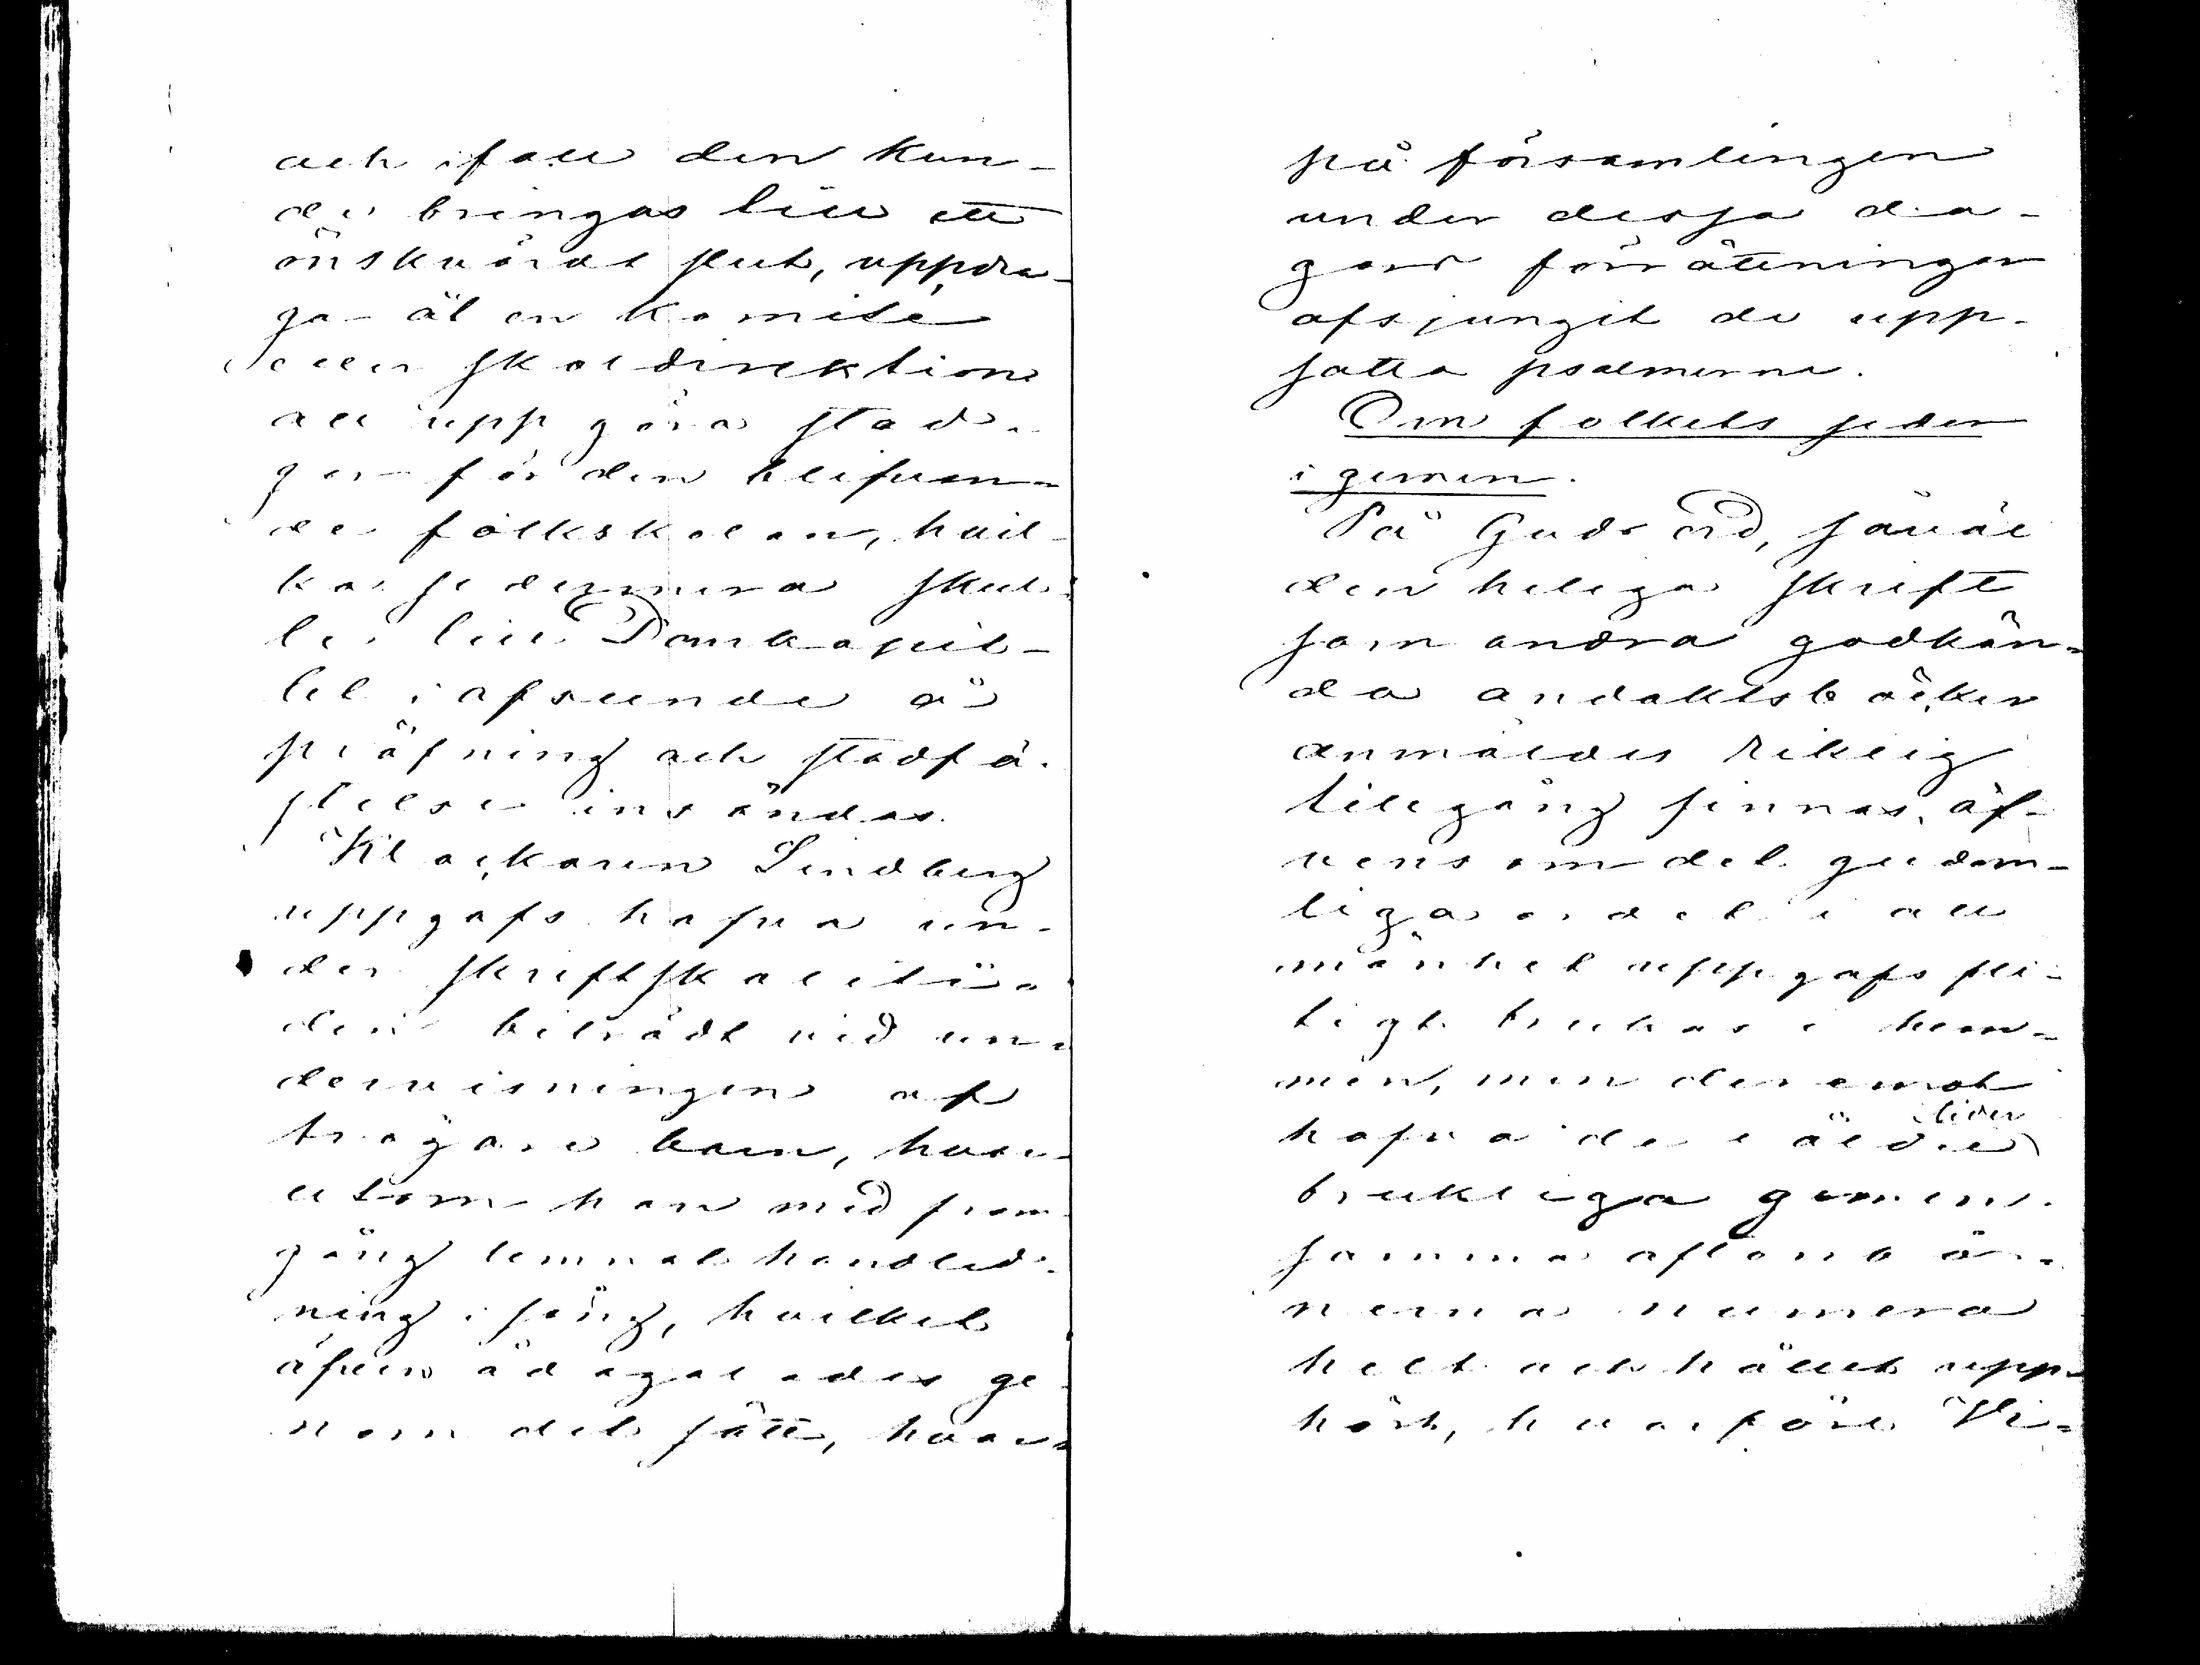 och ifall den kun-
de bringas till ett
önskvärdt slut, uppdra-
ga åt en komité
eller skoldirektion
att uppgöra stad-
gar för den blifvan-
de folkskolan, hvil-
ka sedermera skul-
le till Domkapit-
let i afseende å
pröfning och stadfä-
stelse insändas.
Klockaren Lindberg
uppgafs hafva un-
der skriftskoleti-
den biträdt vid un-
dervisningen af
trögare barn, hvar-
utom han med fram-
gång lemnat handled-
ning i sång, hvilket
äfven ådagalades ge-
nom det sätt, hvar-
på församlingen
under dessa da-
gars förrättningar
afsjungit de upp-
satta psalmerna.
Om folkets seder
i gemen.
På Guds ord, såväl
den heliga skrift
som andra godkän-
da andaktsböcker
anmäldes riklig
tillgång finnas, äf-
vensom det gudom-
liga ordet i all-
mänhet uppgafs fli-
tigt brukas i hem-
men, men deremot
hafva de i äldre tider
brukliga gemen-
samma aftonbö-
nerna numera
helt och hållet upp-
hört, hvarföre Vi-